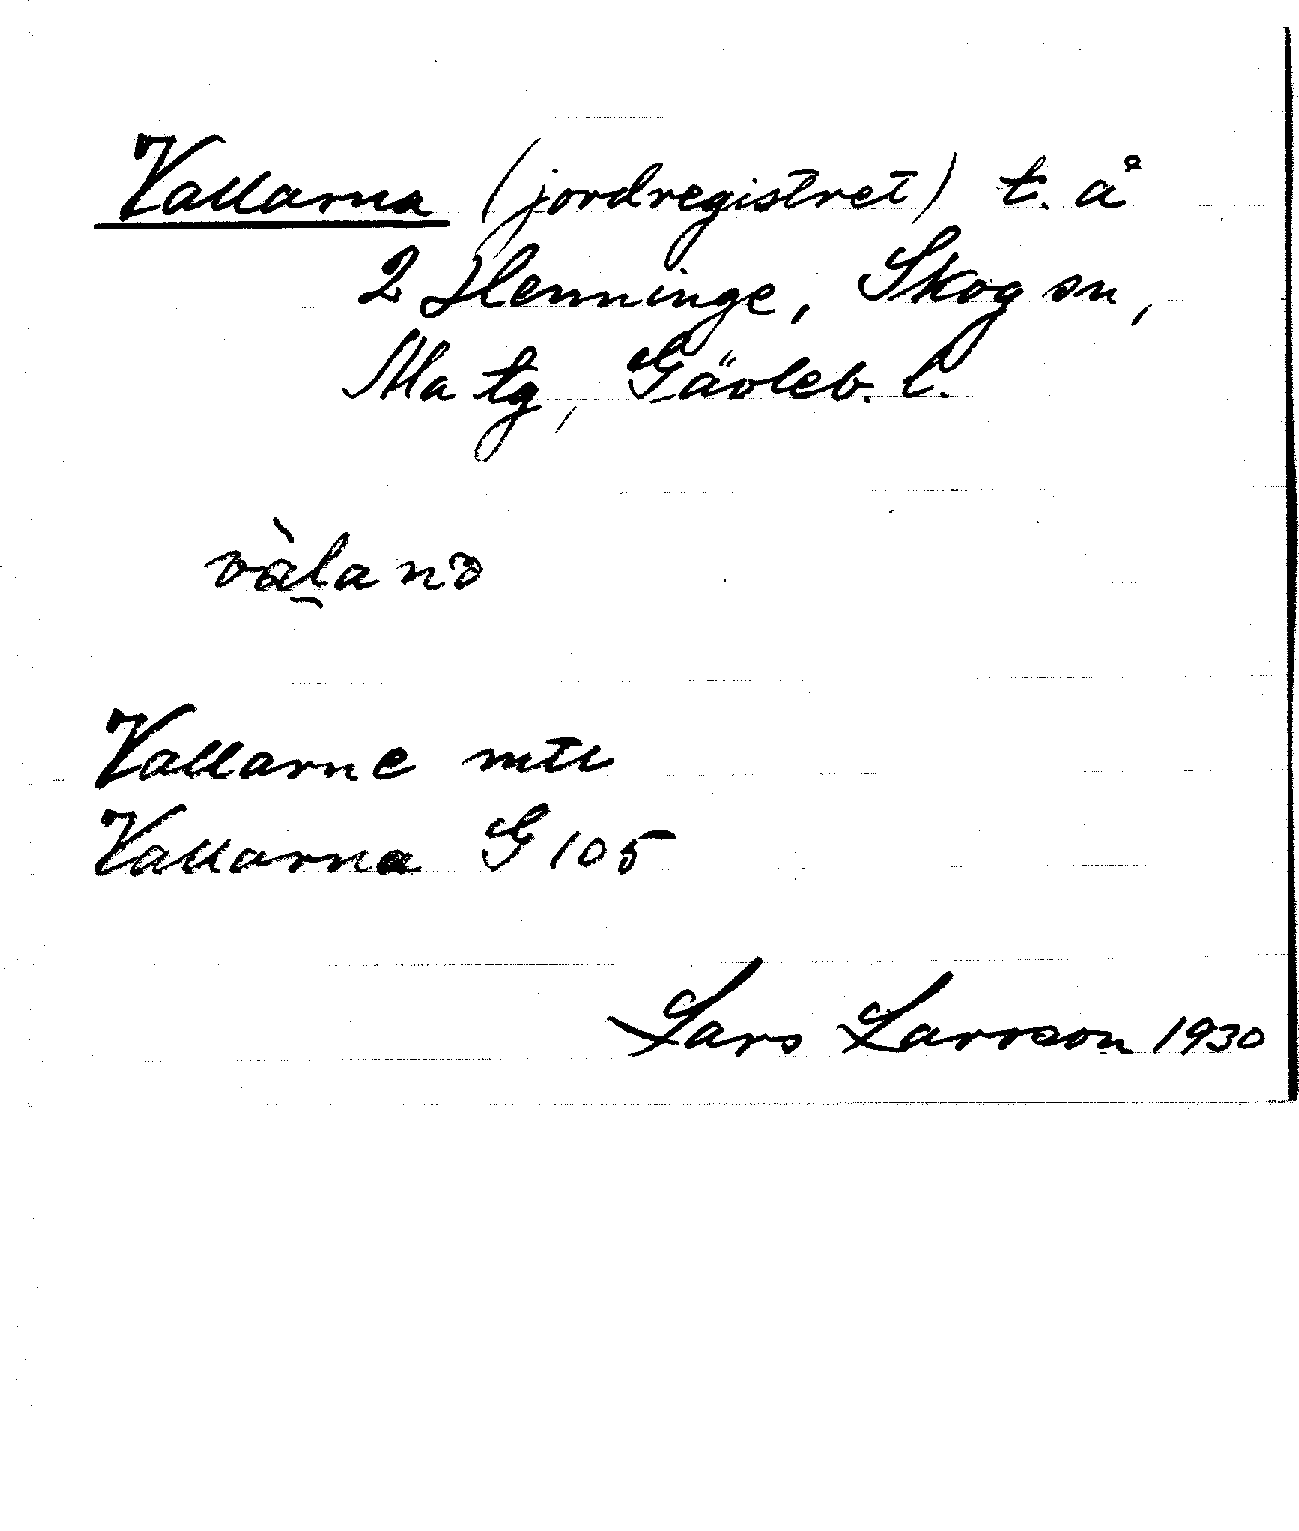 Vallarna (jordregistret) t. å
2 Henninge, Skog sn,
Ala tg, Gävleb. l.
vàl̲anə
Vallarne mtl
Vallarna G 105
Lars Larsson 1930